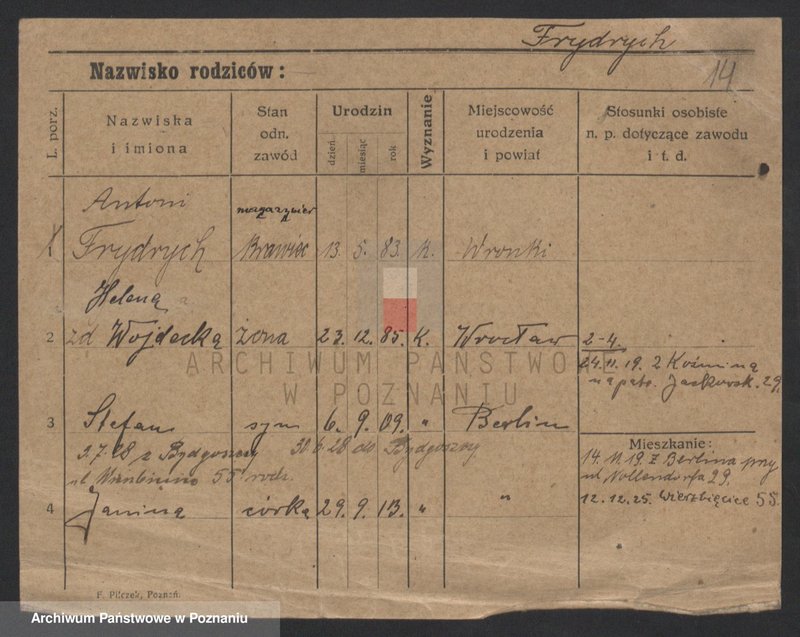 Frydrych
14
Nazwisko rodziców:
L. porz.
Nazwiska
i imiona
Stan
odn.
zawód
Urodzin
dzień
miesiąc
rok
Wyznanie
Miejscowość
urodzenia
i powiat
Stosunki osobiste
n. p. dotyczące zawodu
i t. d.
Antoni magazynier
1 Frydrych Krawiec 13. 5. 83. k. Wronki
Helena
2 zd Wojdecka żona 23. 12. 85. k. Wrocław 2-4.
24. 11. 19. z Koźmina
na Jackowsk. 29.
ARCHIWUM PAŃSTWOWE
W POZNANIU
3 Stefan syn 6. 9. 09. " Berlin
30.6.28 do Bydgoszczy
3.7.28 z Bydgoszczy
ul 55 rodz.
Mieszkanie:
14. 11. 19. z Berlina przy
ul Nollendorfa 29.
12. 12. 25. Wierzbięcice 55.
4 Janina córka 29. 9. 13. " "
F. Pilczek, Poznań.
Archiwum Państwowe w Poznaniu